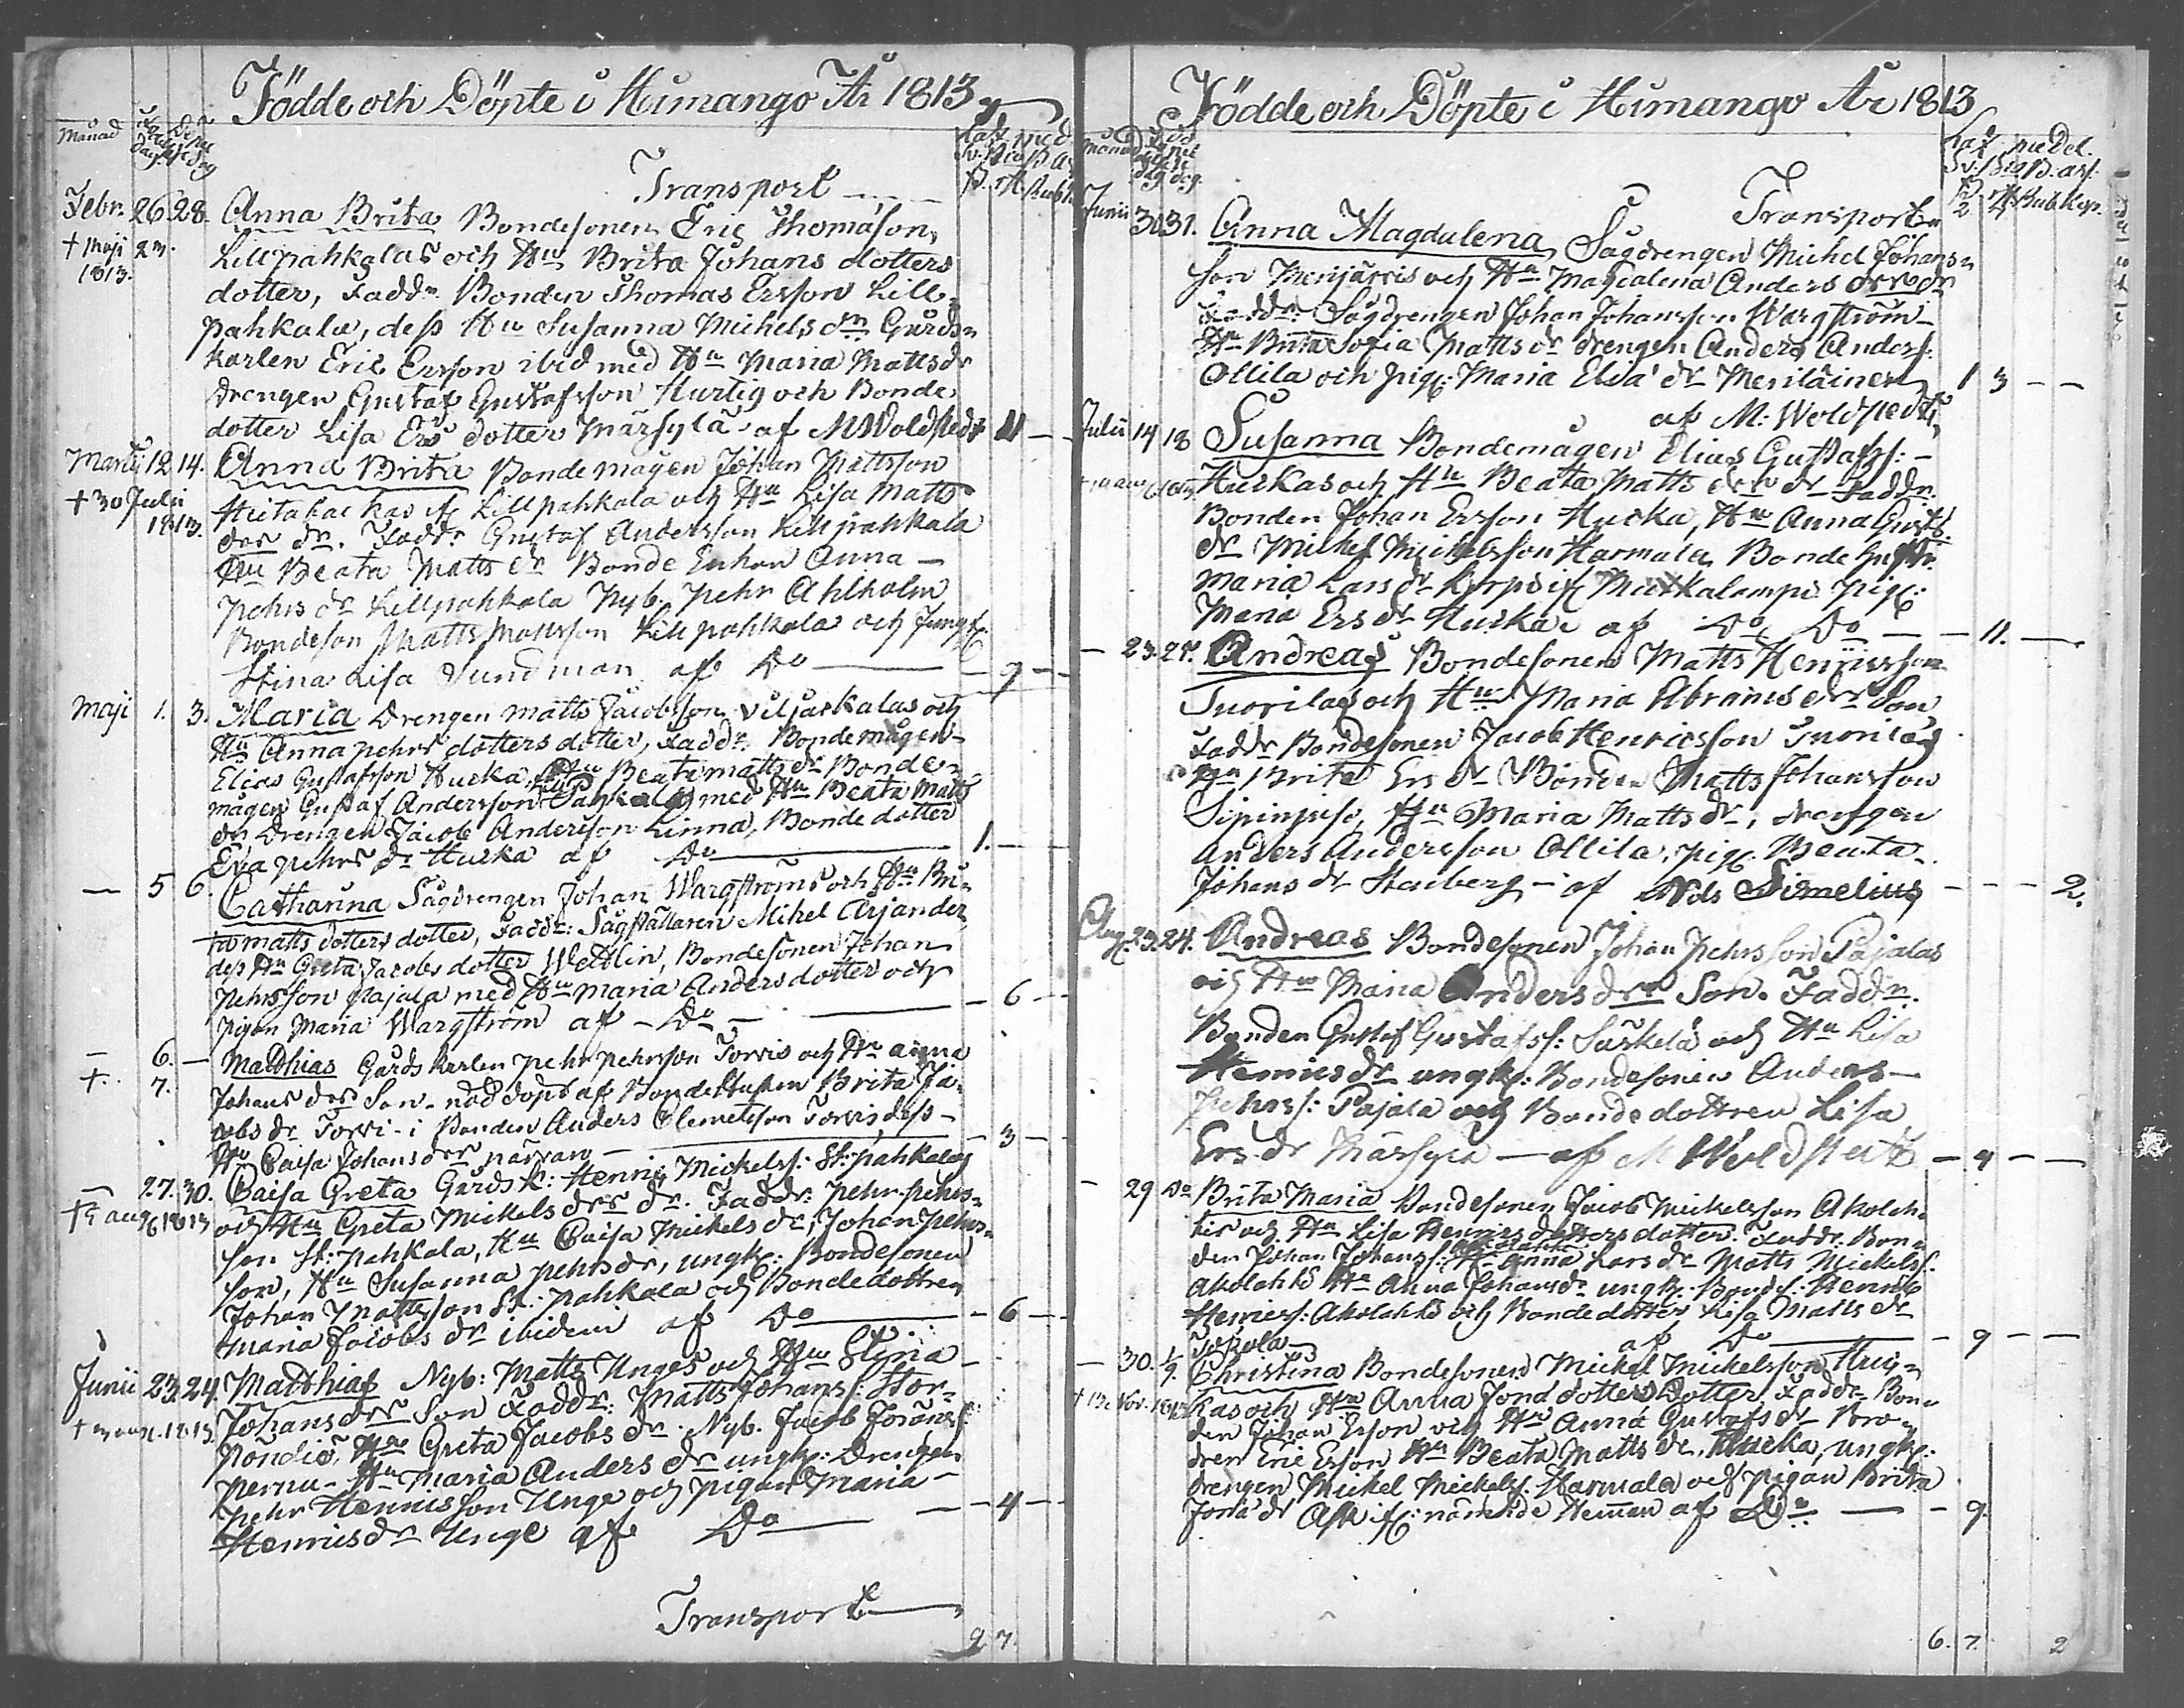 Födde och Döpte i Himango År 1813
Månad
Transport
Febr. 26. 28. Anna Brita Bondesonen Eric Thomason
† Maji 23. Lillpahkalas och Hu Brita Johans dotters
1813. dotter, Fadd. Bonden Thomas Ersson Lill-
pahkala, dess Hu Susanna Michels dr Gårds-
karlen Eric Ersson ibid med Hu Maria Matts dr
drengen Gustaf Gustafsson Hurtig och Bonde
dotter Lisa Ers dotter Märsylä af M Woldstedt 11
Martii 12. 14. Anna Brita Bondemågen Johan Mattsson
† 30 Julii Lillpahkala och Hu Lisa Matts
1813. dr. Fadd: Gustaf Andersson Lillpahkala
Hu Beata Matts dr Bonde Enkan Anna
Pehrs dr Lillpahkala Nyb. Pehr Ahlholm
Bondeson Matts Mattsson Lillpahkala och Jungf.
Stina Lisa Sundman af Do 9
Maji 1. 3. Maria Drengen Matts Jacobsson Viljaskalas och
Hu Anna Pehrs dotters dotter, Fadd: Bondemågen
Elias Gustafsson Huska, Hu Beata Matts dr Bonde-
mågen Gustaf Andersson Lillpahkala med Hu Beata Matts
dr Drengen Jacob Andersson Linna, Bonde dotter
Eva Pehrs dr Huska af Do 1.
5 6. Catharina Sågdrengen Johan Wargströms och Hu Bri-
ta Matts dotters dotter, Fadd: Sågställaren Mikel Arjander,
dess Hu Greta Jacobs dotter Wetlin, Bondesonen Johan
Pehrsson Pajala med Hu Maria Anders dotter och
pigan Maria Wargström af Do 6
6. Matthias Gårdskarlen Pehr Pehrsson Torvis och Hu Anna
†. 7. Johans drs Son. nöddöpt af Bondehustrun Brita Ja-
cobs dr Torvi i Bonden Anders Clemetsson Torvis, dess
Hu Caisa Johans drs närvaro 3
27. 30. Caisa Greta Gårdsk: Henric Mickelss: St: pahkalas
Aug 1813 och Hu Greta Mickels drs dr. Fadd: Pehr Pehrs-
son St: pahkala, Hu Caisa Mickels dr, Johan Pehrs-
son, Hu Susanna Pehrs dr, ungk: Bondesonen
Johan Mattsson St: pahkala och Bondedottren
Maria Jacobs dr ibidem af Do 6
Junii 23. 24. Matthias Nyb: Matts Unges och Hu Stina
1813. Johans drs Son Fadd: Matts Johanss: Stor-
Pöndiö, Hu Greta Jacobs dr. Nyb. Jacob Johanss
Pernu Hu Maria Anders dr ungk: Drengen
Pehr Henricsson Unge och pigan Maria
Henrics dr Unge af Do 4
Transport
27.
Födde och Döpte i Himango År 1813
Transport 2
Junii 30 31. Anna Magdalena Sågdrengen Michel Johans-
son Merijärvis och Hu Magdalena Anders drs dr
Fadd: Sågdrengen Johan Johansson Wargström
Hu Brita Sofia Matts dr drengen Anders Anderss.
Ollila och pig: Maria Elia dr Meriläinen 1 3
af M: Woldstedt
Julii 14 18 Susanna Bondemågen Elias Gustafss:
Huskas och Hu Beata Matts drs dr Fadd.
Bonden Johan Ersson Huska, Hu Anna Gustfs.
dr Mickel Mickelsson Harmala Bonde
Maria Lars dr pig:
Maria Ers dr Huska af Do Do 11.
23. 25. Andreas Bondesonen Matts Henricsson
Tuorilas och Hu Maria Abrams drs Son
Fadd: Bondesonen Jacob Henricsson Tuorilas
Hu Brita Ers dr Bonden Matts Johansson
Hu Maria Matts dr, drengen
Anders Andersson Ollila, pig: Beata
Johans dr Stenberg af Nils Simelius 2.
Aug. 23. 24. Andreas Bondesonen Johan Pehrsson Pajalas
och Hu Maria Anders drs Son. Faddn.
Bonden Gustaf Gustafss: Särkelä och Hu Lisa
Henrics dr ungk: Bondesonen Anders
Pehrss: Pajala och Bondedottren Lisa
Ers dr Märsylä af M Woldstedt 4
29 Do Brita Maria Bondesonen Jacob Mickelsson Akolah-
tis och Hu Lisa Henrics dotters dotter. Fadd: Bon-
den Johan Johanss: Akolahti Hu Anna Lars dr Matts Mickelss.
Akolahti Hu Anna Johans dr ungk: Bondes: Henric
Henricss: Akolahti och Bondedotter Lisa Matts dr
af Do 9
30. 1/9. Christina Bondesonen Mickel Mickelsson Hus-
† 13 Nov. 1813 kas och Hu Anna Jons dotters Dotter, Fadd: Bon-
den Johan Ersson och Hu Anna Gustafs dr Bro-
dren Eric Ersson Hu Beata Matts dr, Huska, ungk:
drengen Mickel Mickelss. Harmala och pigan Brita
Jona dr af Do 9.
6. 7. 2